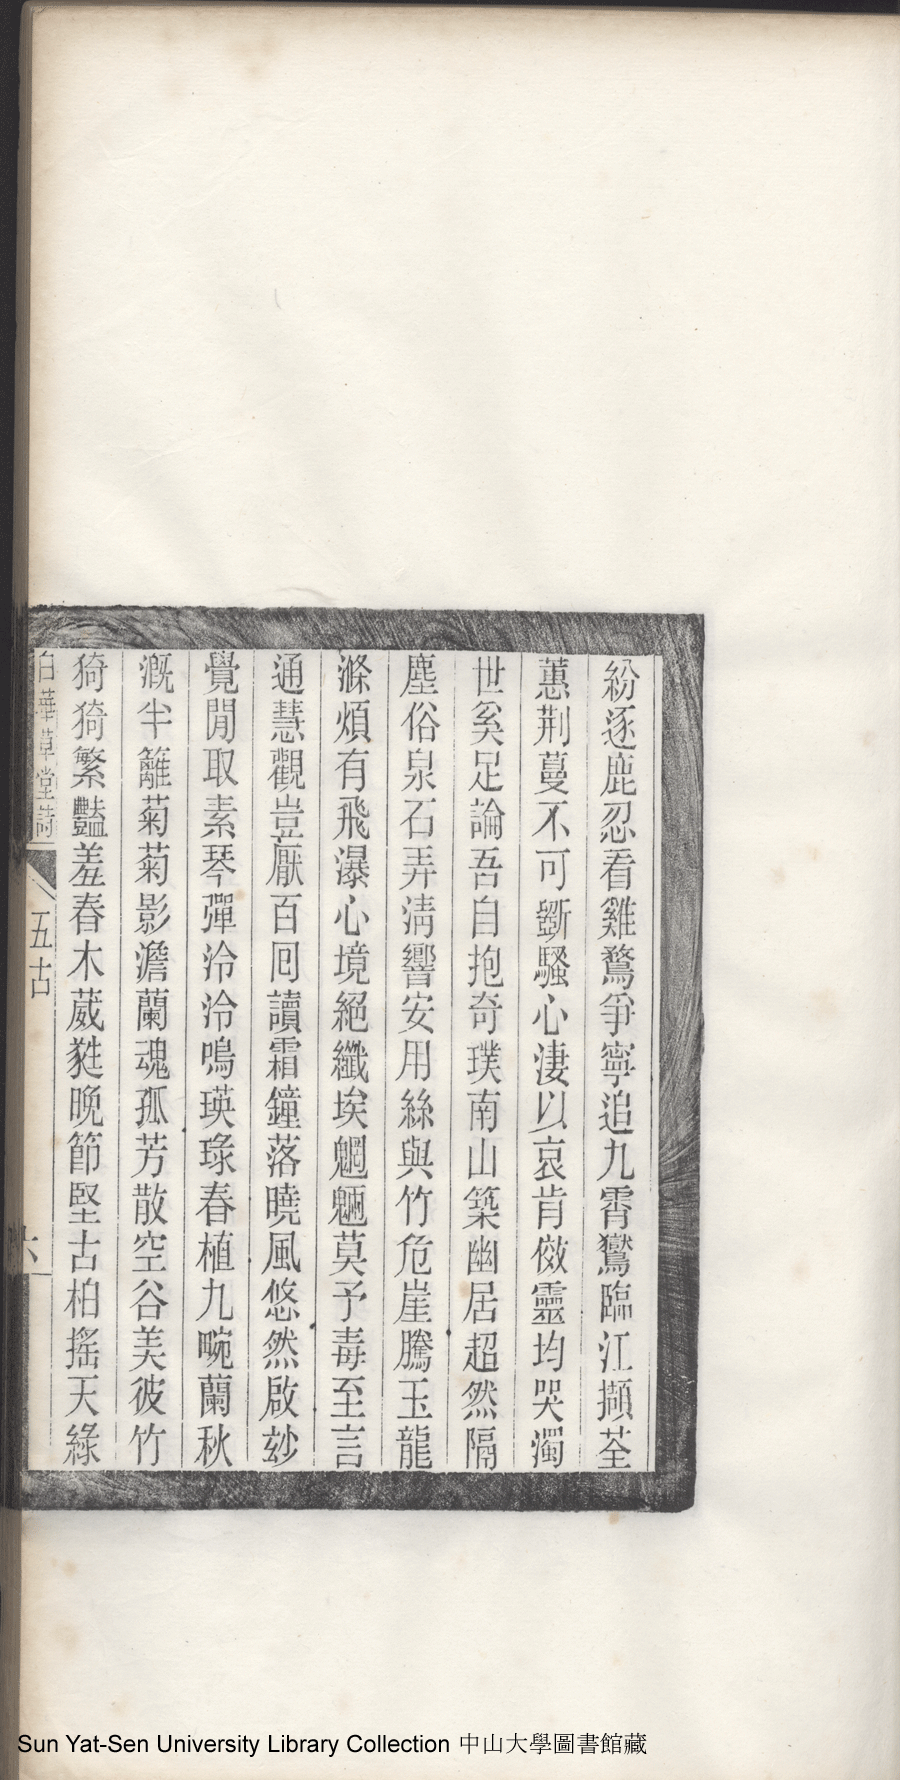 紛逐鹿忍看雞鶩爭寧追九霄鸞臨江擷荃
蕙荆蔓不可斵騷心淒以哀肯傚靈均哭濁
世奚足論吾自抱奇璞南山築幽居超然隔
塵俗泉石弄清響安用絲與竹危崖騰玉龍
滌煩有飛瀑心境絕纖埃魍魎莫予毒至言
通慧觀豈厭百回讀霜鐘落曉風悠然啟玅
覺閒取素琴彈泠泠鳴瑛琭春植九畹蘭秋
溉半籬菊菊影澹蘭魂孤芳散空谷美彼竹
猗猗繁豔羞春木葳甤晚節堅古柏搖天綠
白華草堂詩
五古
六
Sun Yat-Sen University Library Collection 中山大學圖書館藏